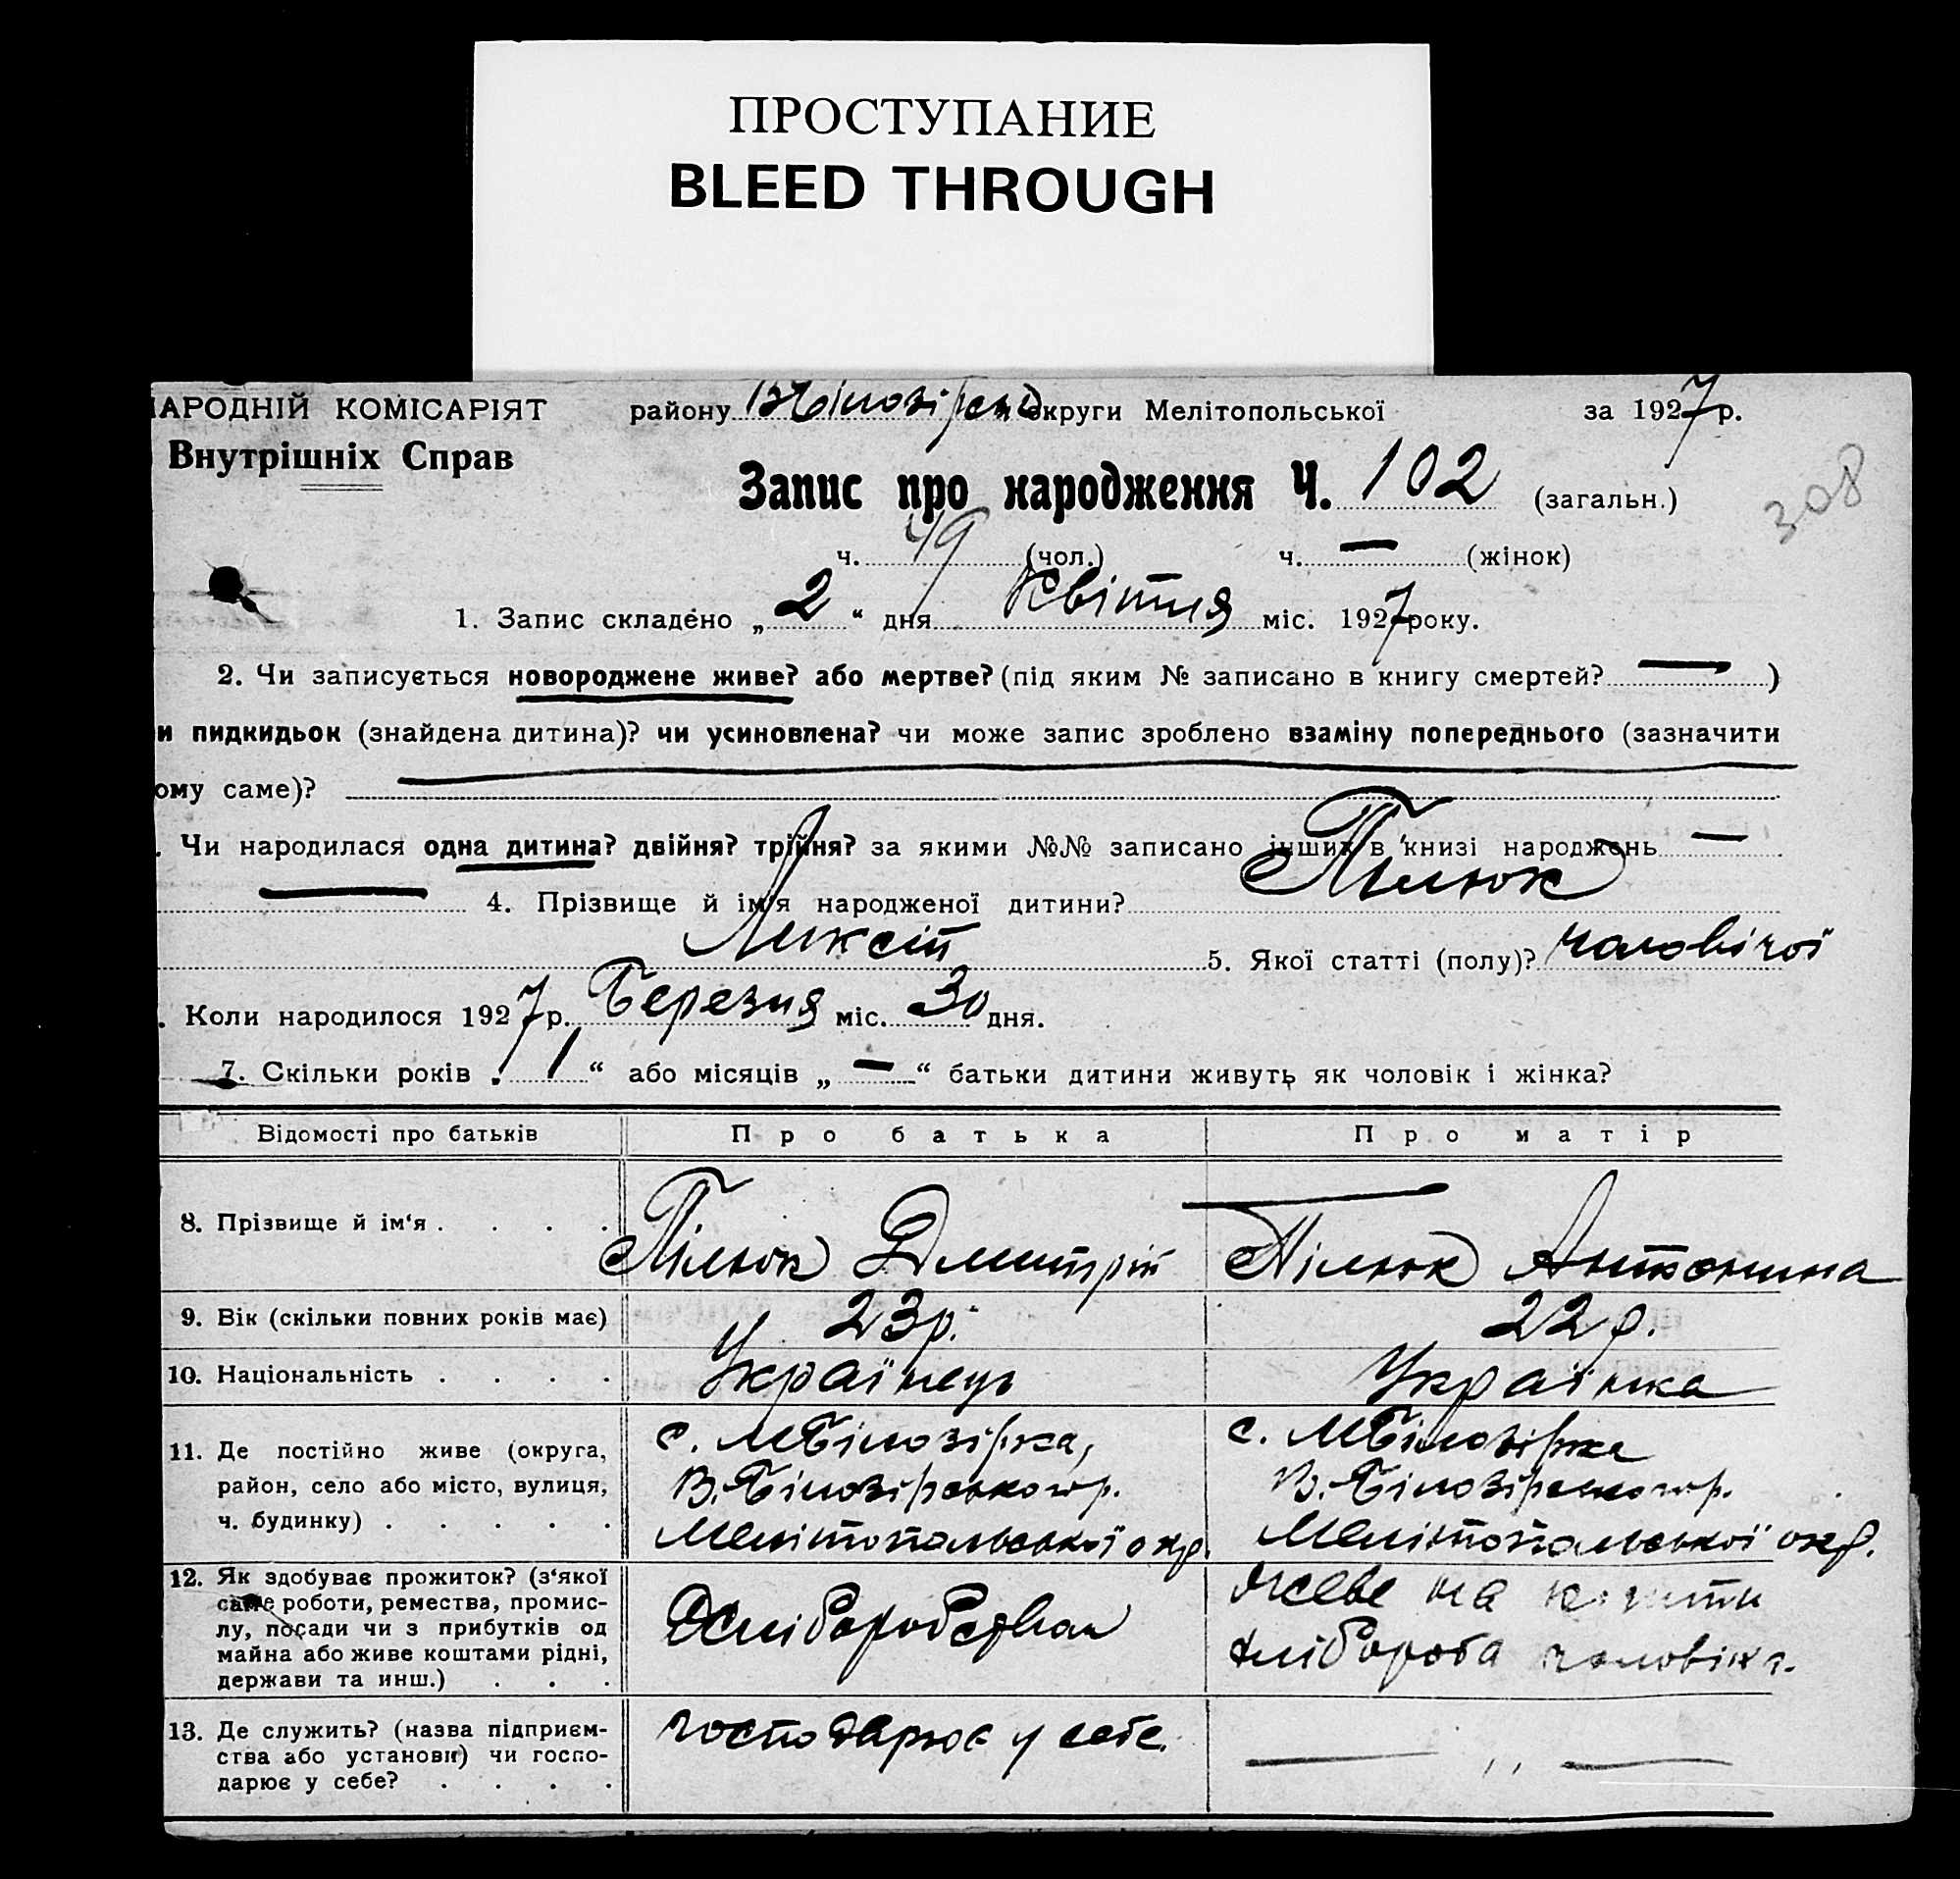 ПРОСТУПАНИЕ
BLEED THROUGH
АРОДНІЙ КОМІСАРІЯТ району округи Мелітопольської за 1927 р.
Внутрішніх Справ
Запис про народження Ч. 102 (загальн.)
308
ч. 49 (чол.) ч. — (жінок)
1. Запис складено „ 2 “ дня Квітня міс. 1927 року.
2. Чи записується новороджене живе? або мертве? (під яким № записано в книгу смертей? — )
и пидкидьок (знайдена дитина)? чи усиновлена? чи може запис зроблено взаміну попереднього (зазначити
ому саме)? —
. Чи народилася одна дитина? двійня? трійня? за якими №№ записано інших в книзі народжень —
— 4. Прізвище й ім'я народженої дитини? Пілюк
5. Якої статті (полу)? чоловічої
. Коли народилося 1927 р. Березня міс. 30 дня.
7. Скільки років „ 1 “ або місяців „ — “ батьки дитини живуть як чоловік і жінка?
Відомості про батьків Про батька Про матір
8. Прізвище й ім‘я . . . . Пілюк Дмитрій Пілюк Антонина
9. Вік (скільки повних років має) 23 р. 22 р.
10. Національність . . . . Українець Українка
11. Де постійно живе (округа, с. МБілозірка, с. МБілозірка
район, село або місто, вулиця, В. Білозірського р. В. Білозірського р.
ч. будинку) . . . . . Мелітопольської окр. Мелітопольської окр.
12. Як здобуває прожиток? (з‘якої живе на кошти
саме роботи, ремества, промис-
лу, посади чи з прибутків од хлібороба чоловіка.
майна або живе коштами рідні,
держави та инш.) . . .
13. Де служить? (назва підприєм- господарює у себе.
ства або установи) чи госпо- — „ —
дарює у себе? . . . .